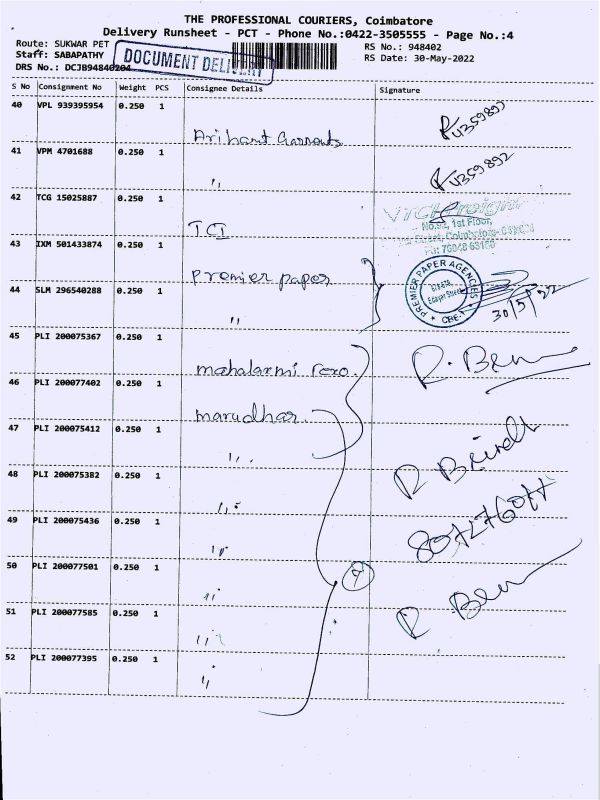 THE PROFESSIONAL COURIERS, Coimbatore
Delivery Runsheet - PCT - Phone No.:0422-3505555 - Page No.:4
Route: SUKWAR PET
Staff: SABAPATHY
DRS No.: DCJB94840204
DOCUMENT DELIVERY
RS No.: 948402
RS Date: 30-May-2022
S No Consignment No Weight PCS Consignee Details Signature
40 VPL 939395954 0.250 1
Arihant Garments
41 VPM 4701688 0.250 1
〃
42 TCG 15025887 0.250 1
TCI
No.92, 1st Floor,
43 IXM 501433874 0.250 1
Premier paper
PREMIER PAPER AGENCIES
CBE-1
44 SLM 296540288 0.250 1
〃
30/5/22
45 PLI 200075367 0.250 1
mahalaxmi
46 PLI 200077402 0.250 1
marudhar
47 PLI 200075412 0.250 1
〃
48 PLI 200075382 0.250 1
〃
49 PLI 200075436 0.250 1
〃
50 PLI 200077501 0.250 1
9
〃
51 PLI 200077585 0.250 1
〃
52 PLI 200077395 0.250 1
〃